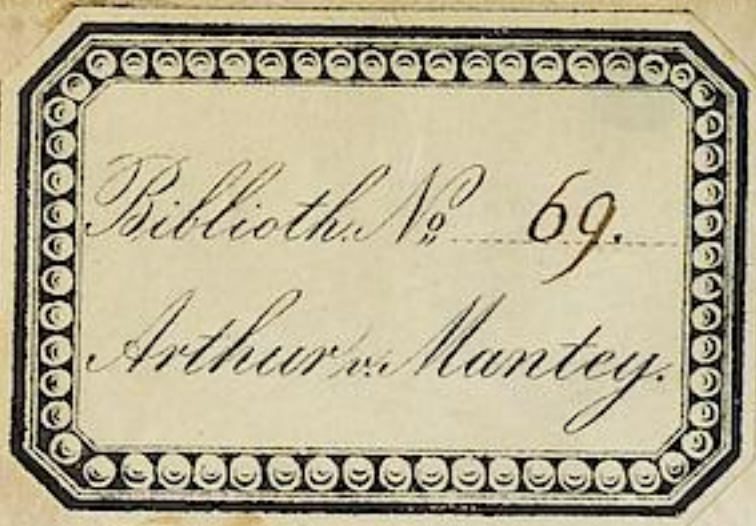 Biblioth. No 69.
Arthur v. Mantey.